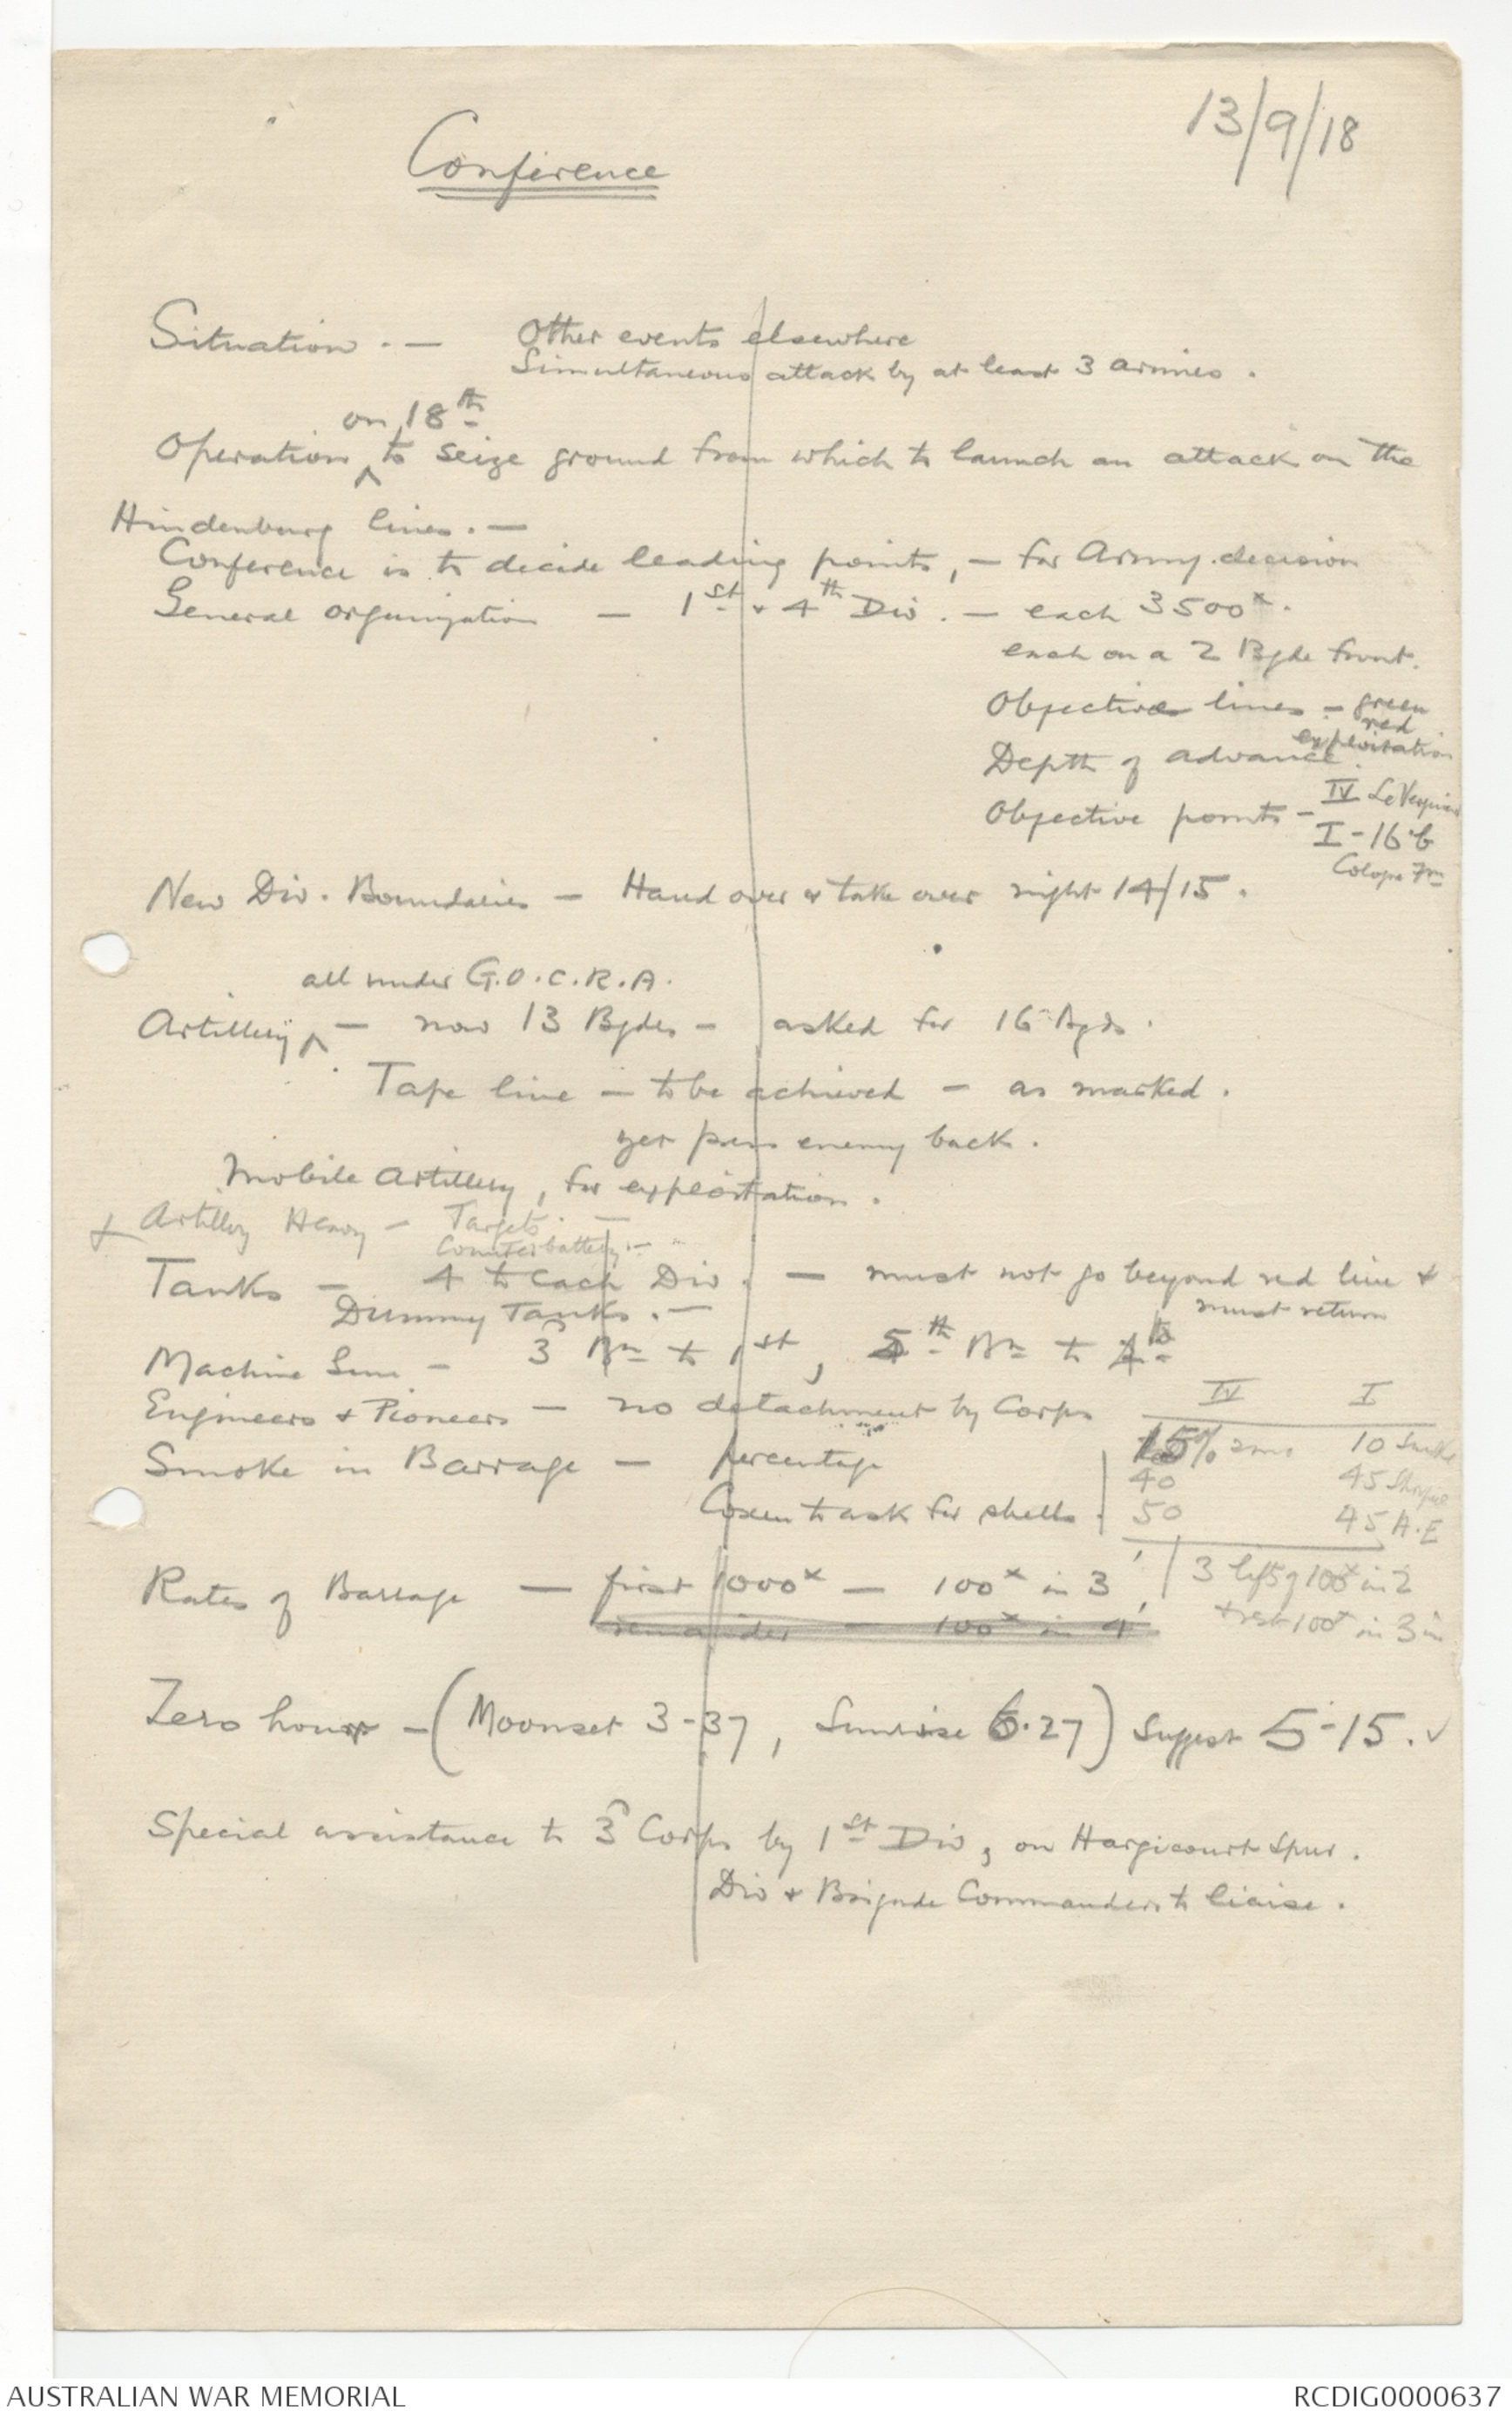 13/9/18
Conference
Situation. — Other events elsewhere
Simultaneous attack by at least 3 armies.
on 18th
Operation ^ to seize ground from which to launch an attack on the
Hindenburg lines. —
Conference is to decide leading points, — for Army decision
General organization — 1st & 4th Div. — each 3500x.
each on a 2 Bgde front.
Objective lines — green
red
exploitation
Depth of advance
Objective points — IV Le Verguier
I - 16 b
Cologne Fm
New Div. Boundaries — Hand over & take over night 14/15.
all under G.O.C.R.A.
Artillery ^ — now 13 Bgdes — asked for 16 Bgds.
Tape line — to be achieved — as marked.
yet press enemy back.
Mobile Artillery, for exploitation.
+ Artillery Heavy — Targets. —
Counterbattery. — "
Tanks — 4 to each Div. — must not go beyond red line &
must return
Dummy Tanks. —
Machine Guns — 3rd Bn to 1st, 5th Bn to 4th
Engineers & Pioneers — no detachment by Corps
IV I
Smoke in Barrage — percentage
15% smo 10 Smoke
40 45 Shrapnel
Coxen to ask for shells. 50 45 H.E
Rates of Barrage — first 1000x — 100x in 3'
3 lifts of 100x in 2
remainder — 100x in 4'
& rest 100x in 3 in
Zero hour — (Moonset 3-37, Sunrise 6.27) Suggest 5-15. ✓
Special assistance to 3rd Corps by 1st Div, on Hargicourt Spur.
Div & Brigade Commanders to liaise.
AUSTRALIAN WAR MEMORIAL
RCDIG0000637